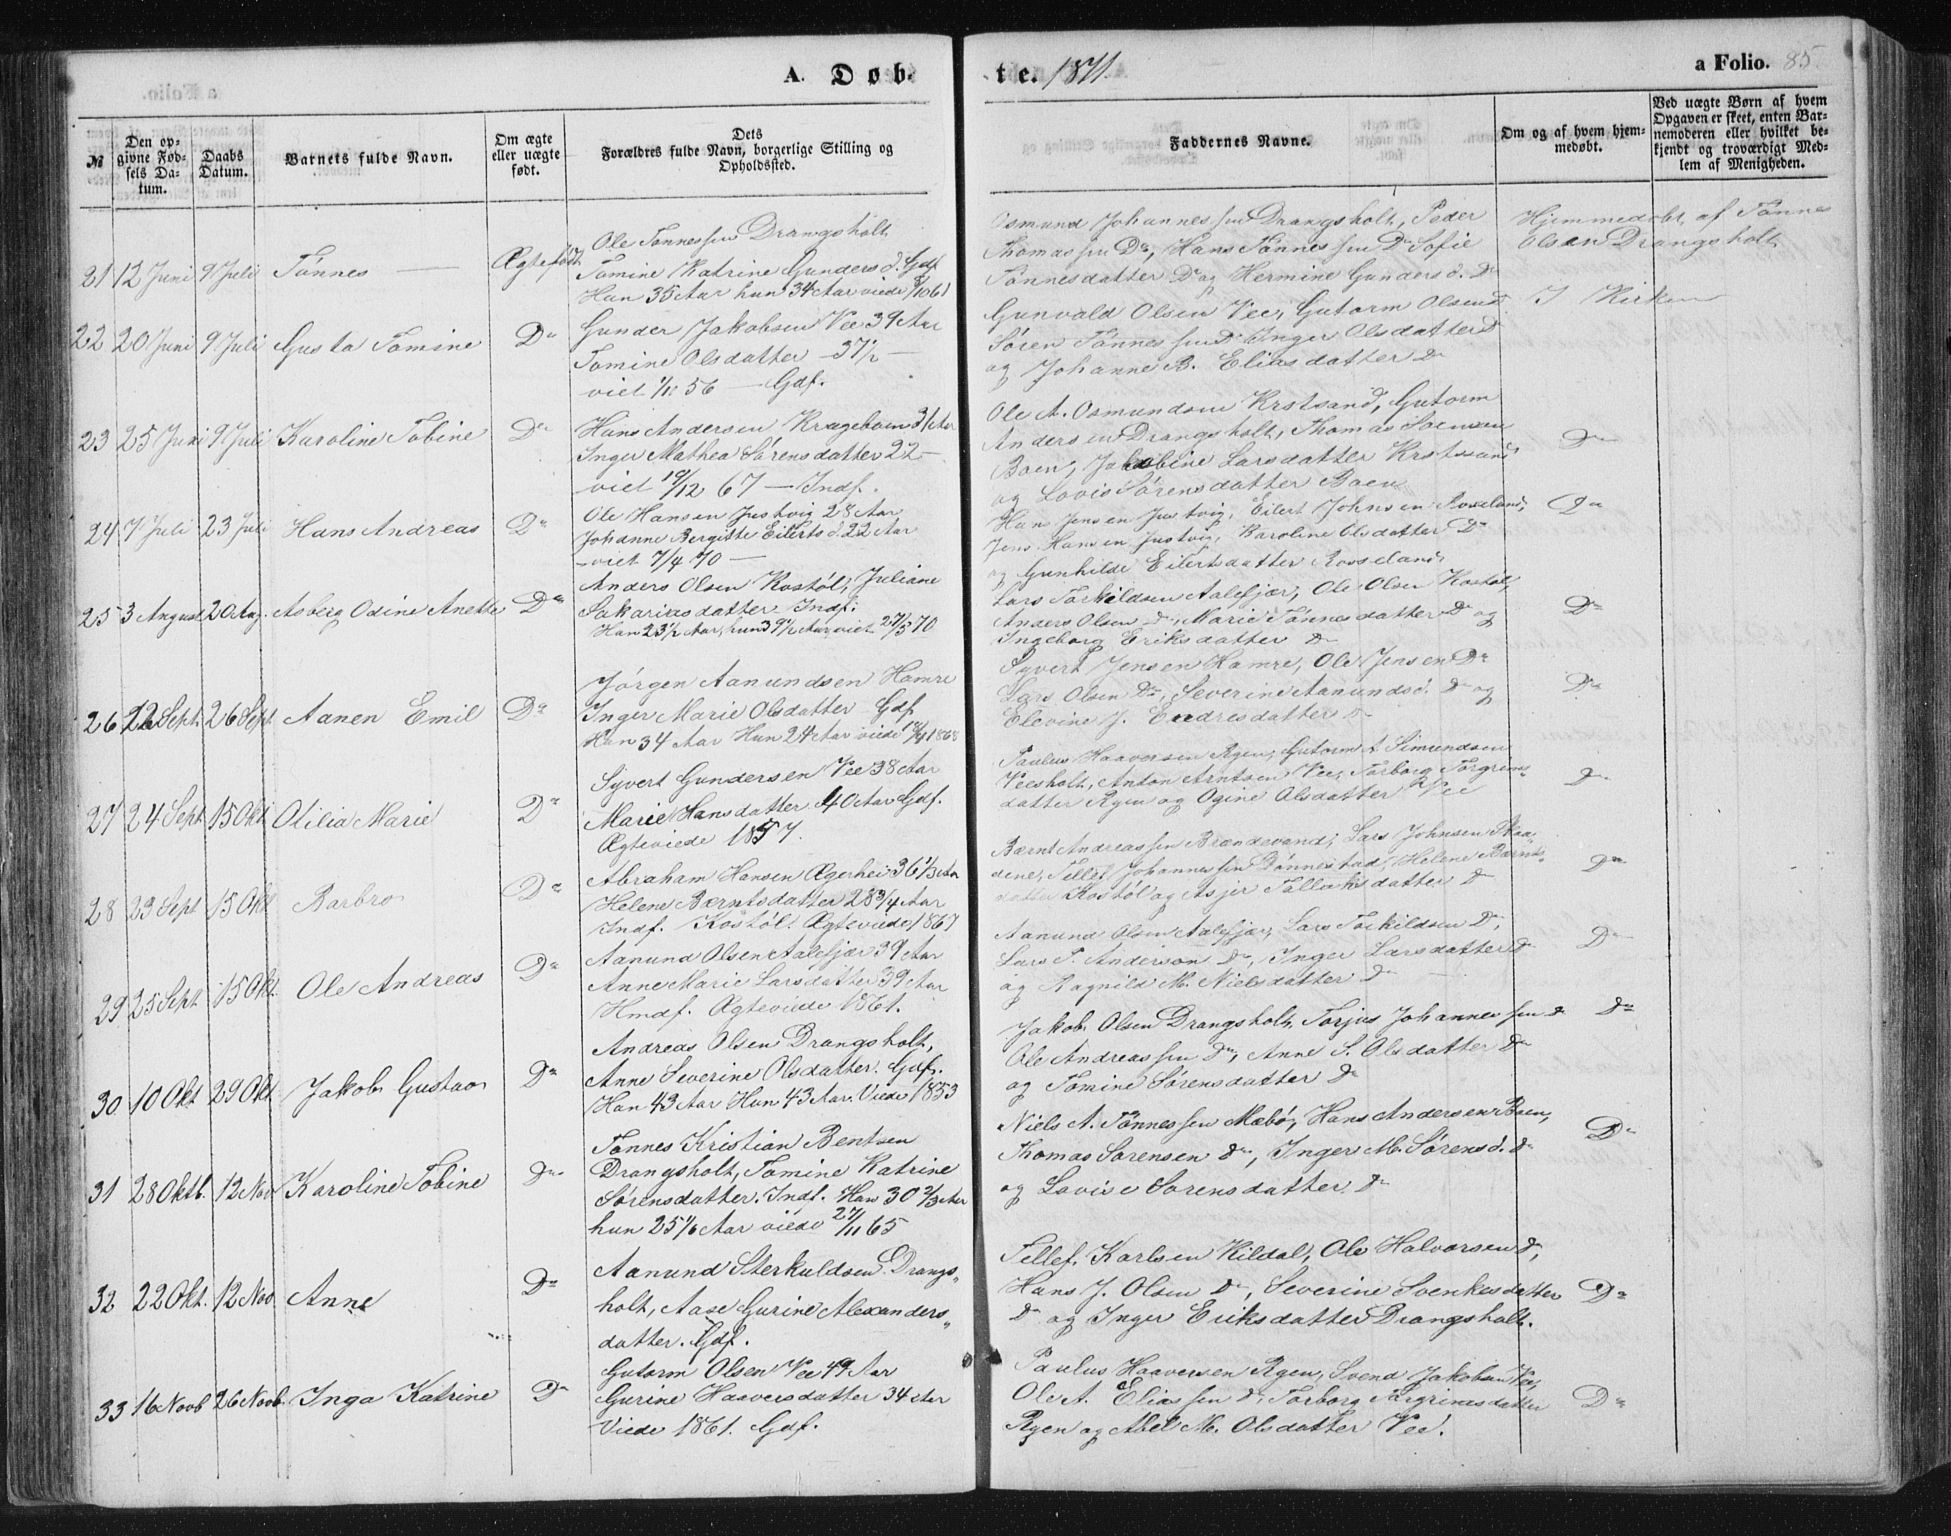 A. Døb-
te. 1871.
a Folio. 85
№
Den opgivne Fødsels Datum.
Daabs Datum.
Barnets fulde Navn.
Om ægte eller uægte født.
Dets Forældres fulde Navn, borgerlige Stilling og Opholdssted.
Faddernes Navne.
Om og af hvem hjemmedøbt.
Ved uægte Børn af hvem Opgaven er skeet, enten Barnemoderen eller hvilket bekjendt og troværdigt Medlem af Menigheden.
21 12 Juni 9 Juli Tønnes — Ægtefødt
Ole Tønnessen Drangsholt
Tomine Katrine Gundersd. Gdf
Han 35 Aar hun 34 Aar viede 1061
Osmund Johannessen Drangsholt, Peder
Thomassen Do, Hans Tønnessen Do Sofie
Tønnesdatter Do og Hermine Gundersd. Do
Hjemmedøbt af Tønnes
Olsen Drangsholt
22 20 Juni 9 Juli Gusta Tomine Do
Gunder Jakobsen Vee 39 Aar
Tomine Olsdatter — 37½ —
viet 1/11 56 — Gdf.
Gunvald Olsen Vee, Gutorm Olsen Do
Søren Tønnessen Do Inger Olsdatter Do
og Johanne B. Eliasdatter Do
I Kirken
23 25 Juni 9 Juli Karoline Tobine Do
Hans Andersen Krageboen 31 Aar
Inger Mathea Sørensdatter 22 —
viet 10/12 67 — Indf.
Ole A. Osmundsen Krstsand, Gutorm
Andersen Drangsholt, Thomas Sørensen
Boen, Jakobine Larsdatter Krstsand
og Lovis Sørensdatter Boen
Do
24 7 Juli 23 Juli Hans Andreas Do
Ole Hansen Justvig 28 Aar
Johanne Bergitte Eilertsd. 22 Aar
— viet 7/4 70 —
Han Jensen Justvig, Eilert Johnsen Rosseland,
Jens Hansen Justvig, Karoline Olsdatter Do
og Gunhilde Eilertsdatter Rosseland
Do
25 3 August 20 Aug. Asberg Odine Anette Do
Anders Olsen Kostøl, Juliane
Sakariasdatter Indf.
Han 23½ Aar, hun 39½ Aar, viet 27/5 70
Lars Torkildsen Aalefjær, Ole Olsen Kostøl,
Anders Olsen Do, Marie Tønnesdatter Do og
Ingeborg Eriksdatter Do
Do
26 22 Sept. 26 Sept. Aanen Emil Do
Jørgen Aanundsen Hamre
Inger Marie Olsdatter Gdf
Han 34 Aar Hun 24 Aar viede 1868
Syvert Jensen Hamre, Ole Jensen Do
Lars Olsen Do, Severine Aanundsd. Do og
Elevine J. Endresdatter Do
Do
27 24 Sept. 15 Okt. Otilia Marie Do
Syvert Gundersen Vee 38 Aar
Marie Hansdatter 40 Aar Gdf.
Ægteviede 1857.
Paulus Haaversen Ryen, Gutorm A Simundsen
Veesholt, Anton Arntsen Vee, Torborg Torgrims-
datter Ryen og Ogine Olsdatter Vee
Do
28 23 Sept 15 Okt Barbro Do
Abraham Hansen Ægerhei 36 1/3 Aar
Helene Berntsdatter 28 3/4 Aar
Indf. Kostøl. Ægteviede 1867
Bernt Andreassen Brandevand, Lars Johnsen Skaa-
dene, Tellef Johannessen Dønnestad, Helene Bernts-
datter Kostøl og Asjer Tellaksdatter Do
Do
29 25 Sept. 15 Okt. Ole Andreas Do
Aanund Olsen Aalefjær 39 Aar
Anne Marie Larsdatter 39 Aar
Hmdf. Ægteviede 1861.
Aanund Olsen Aalefjær, Lars Torkildsen Do,
Lars T. Anderson Do, Inger Larsdatter Do
og Ragnild M. Nielsdatter Do
Do
30 10 Okt 29 Okt. Jakob Gustav Do
Andreas Olsen Drangsholt,
Anne Severine Olsdatter. Gdf.
Han 43 Aar Hun 43 Aar. Viede 1853
Jakob Olsen Drangsholt, Torjus Johannessen Do
Ole Andreassen Do, Anne S. Olsdatter Do
og Tomine Sørensdatter Do
Do
31 28 Oktb. 12 Nov Karoline Tobine Do
Tønnes Kristian Bentsen
Drangsholt, Tomine Katrine
Sørensdatter. Indf. Han 30 2/3 Aar
hun 25 1/6 Aar viede 27/11 65
Niels A. Tønnessen Mæbø, Hans Andersen Boen,
Thomas Sørensen Do, Inger M. Sørensd. Do
og Lovise Sørensdatter Do
Do
32 22 Okt. 12 Nov Anne Do
Aanund Sterkuldsen Drangs-
holt, Aase Gurine Alexanders-
datter. Gdf.
Tellef Karlsen Kildal, Ole Halvorsen Do,
Hans J. Olsen Do, Severine Svenkesdatter
Do og Inger Eriksdatter Drangsholt.
Do
33 16 Novb 26 Novb. Inga Katrine Do
Gutorm Olsen Vee 49 Aar
Gurine Haaversdatter 34 Aar
Viede 1861. Gdf.
Paulus Haaversen Ryen, Svend Jakobsen Vee,
Ole A. Eliassen Do, Torborg Torgrimsdatter
Ryen og Abel M. Olsdatter Vee.
Do